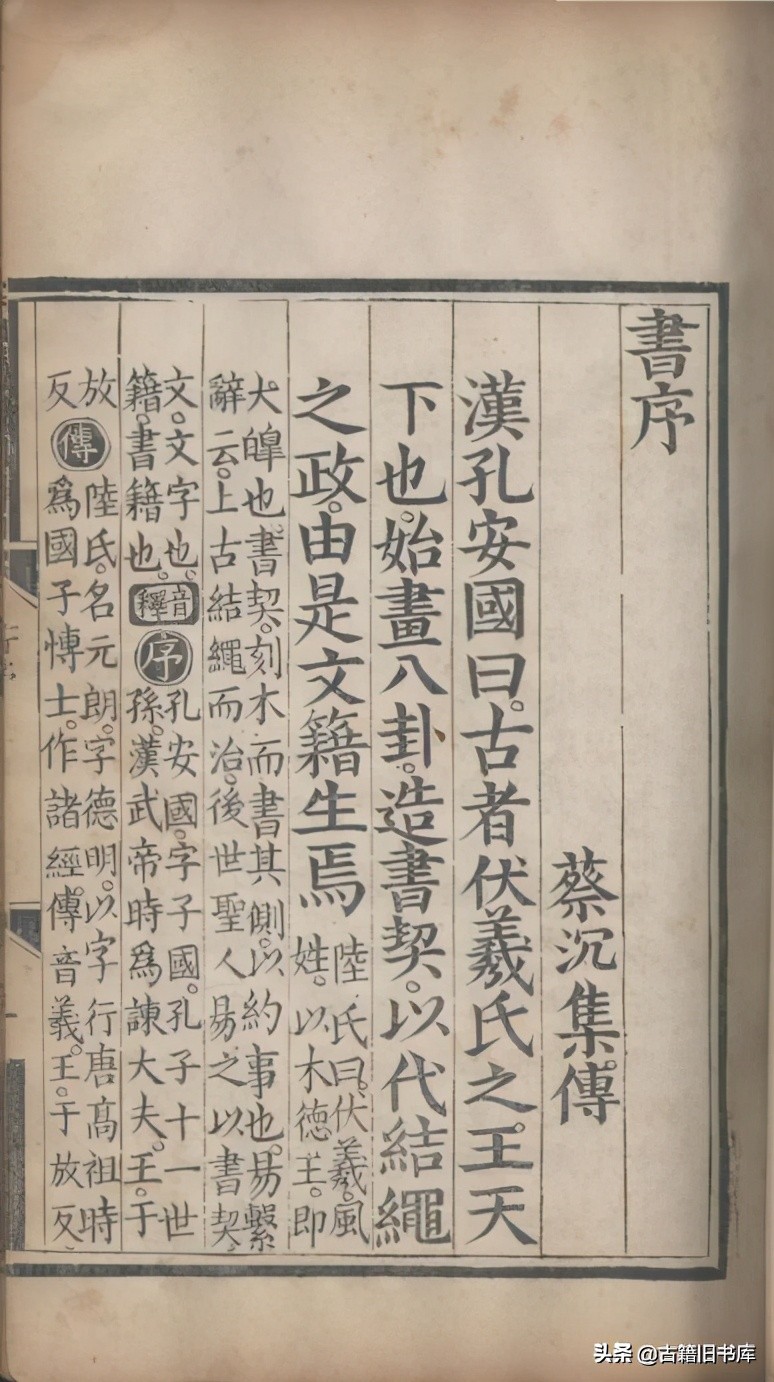 書序
蔡沉集傳
漢孔安國曰。古者伏羲氏之王天
下也。始畫八卦。造書契。以代結繩
之政。由是文籍生焉
陸氏曰。伏羲。風
姓。以木德王。即
大皥也。書契。刻木而書其側。以約事也。易繫
辭云。上古結繩而治。後世聖人易之以書契。
文。文字也。
籍。書籍也。
音釋
序
孔安國。字子國。孔子十一世
孫。漢武帝時爲諫大夫。王。于
放
反
傳
陸氏。名元朗。字德明。以字行唐高祖時
爲國子博士。作諸經傳音義。王。于放反、
头条 @古籍旧书库